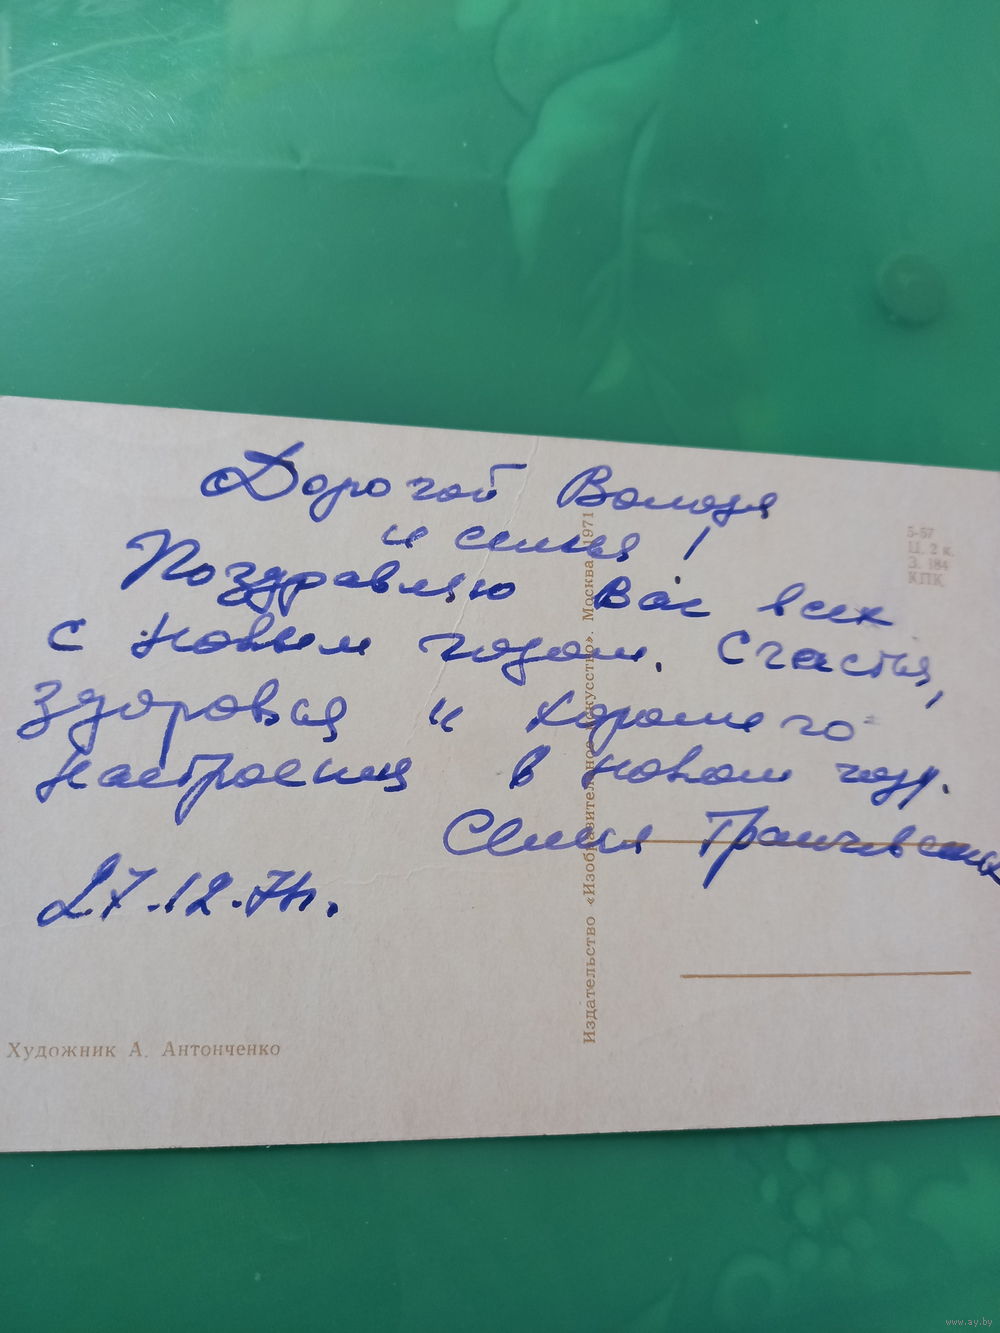 Дорогой Володя
и семья!
Поздравляю Вас всех
с Новым годом. Счастья,
здоровья и хорошего
настроения в новом году.
Семья
27.12.71г.
Художник А. Антонченко
Издательство «Изобразительное искусство». Москва. 1971
5-57
Ц. 2 к.
З. 184
КПК
www.ay.by